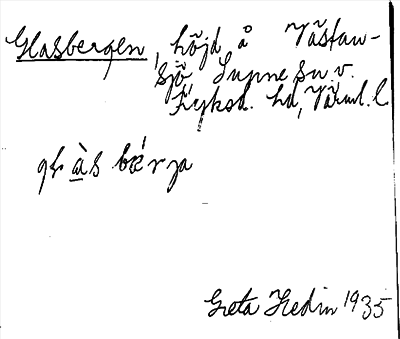 Glasbergen, höjd å Västan-
sjö Sunne sn. v.
Fryksd. hd, Värml. l.
Greta Hedin 1935